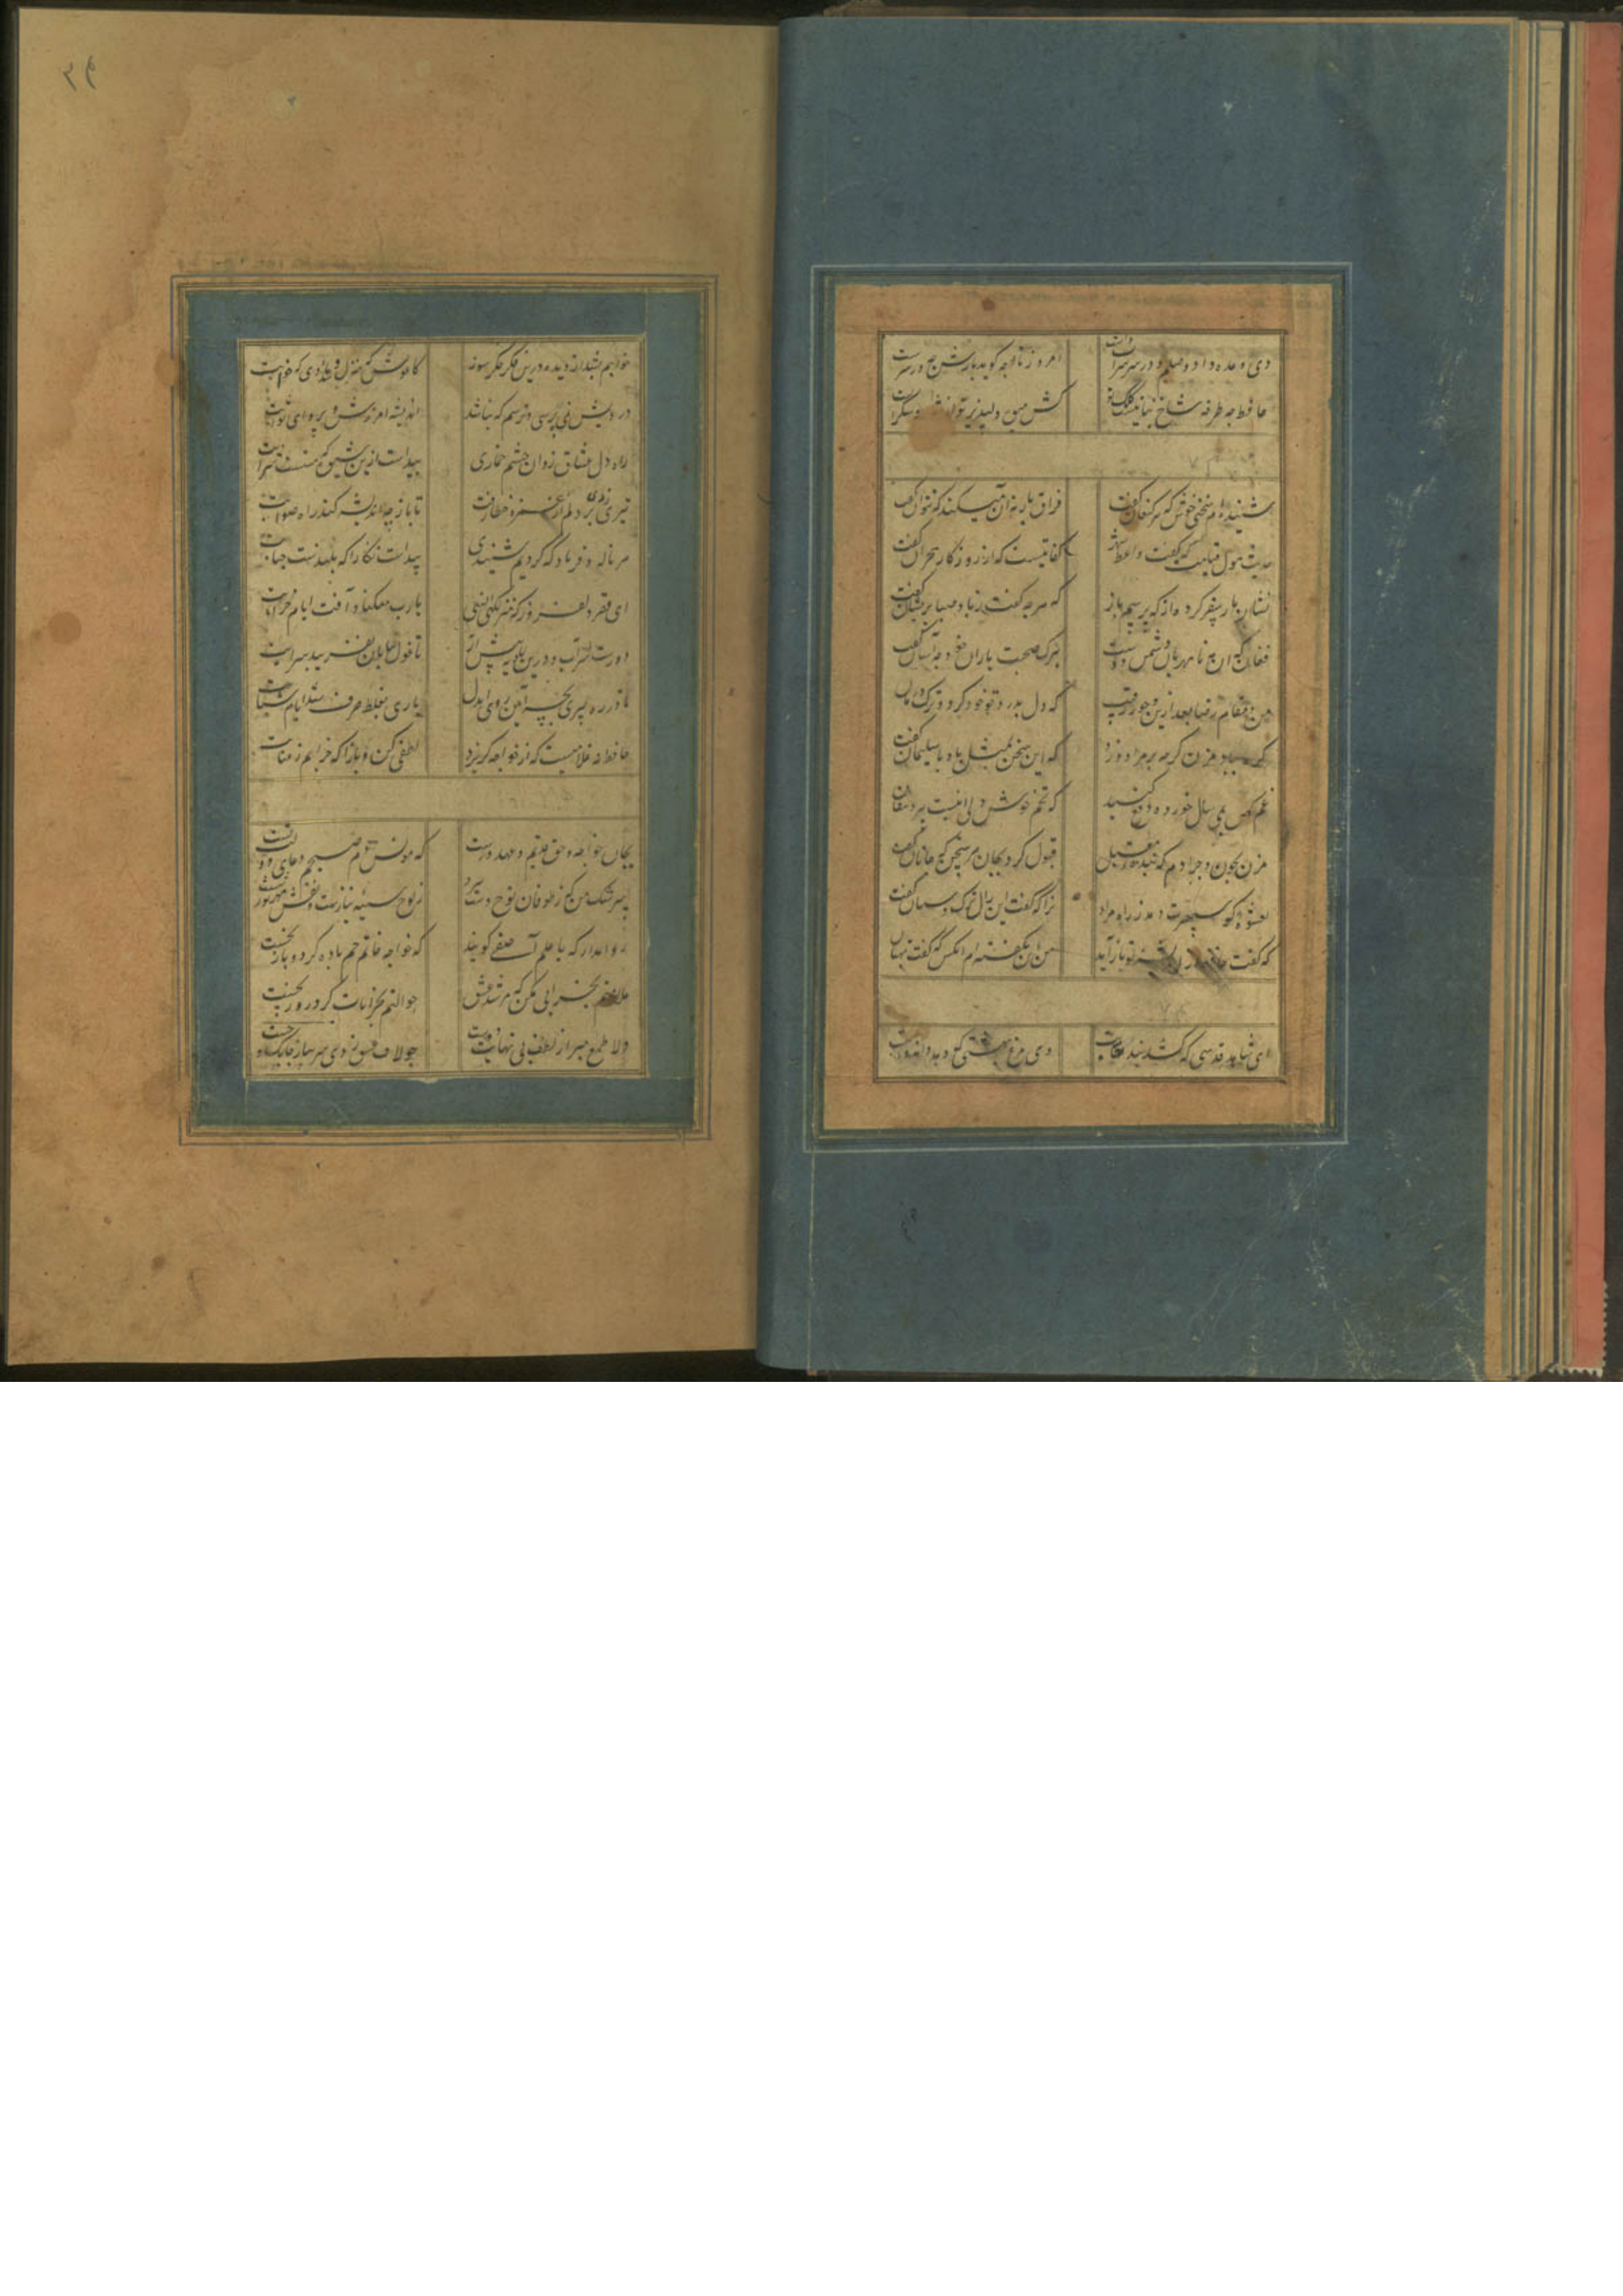 دی وعده داد وصلم و در سر شراب داشت امروز تا چه گوید بازش چه در سرست
حافظ چه طرفه شاخ نباتیست کلک تو کش میوه دلپذیرتر از شهد و شکرست
شنیده‌ام سخنی خوش که پیر کنعان گفت فراق یار نه آن میکند که بتوان گفت
حدیث هول قیامت که گفت واعظ شهر کنایتیست که از روزگار هجران گفت
نشان یار سفر کرده از که پرسم باز که هرچه گفت برید صبا پریشان گفت
فغان که آن مه نامهربان دشمن دوست بترک صحبت یاران خود چه آسان گفت
من و مقام رضا بعد ازین و جور رقیب که دل بدرد تو خو کرد و ترک درمان
گره بباد مزن گرچه بر مراد وزد که این سخن بمثل باد با سلیمان گفت
غم کهن بمی سال خورده دفع کنید که تخم خوش دلی اینست پیر دهقان
مزن بچون و چرا دم که بنده مقبل قبول کرد بجان هر سخن که جانان گفت
بعشوه که سپهرت دهد ز راه مرو ترا که گفت که این زال ترک دستان گفت
که گفت حافظ از اندیشه تو باز آمد من این نگفته‌ام آنکس که گفت بهتان
ای شاهد قدسی که کشد بند نقابت وی مرغ بهشتی که دهد دانه و آبت
خوابم بشد از دیده درین فکر جگر سوز کاغوش که شد منزل و ماوای که خوابت
درویش نمی‌پرسی و ترسم که نباشد اندیشه آمرزش و پروای ثوابت
راه دل عشاق زد آن چشم خماری پیداست ازین شیوه که مستست شرابت
تیری که زدی بر دلم از غمزه خطا رفت تا باز چه اندیشه کند رای صوابت
هر ناله و فریاد که کردم نشنیدی پیداست نگارا که بلندست جنابت
ای قصر دلفروز که منزلگه انسی یارب مکناد آفت ایام خرابت
دورست سر آب درین بادیه هش دار تا غول بیابان نفریبد بسرابت
تا در ره پیری بچه آیین روی ای دل باری بغلط صرف شد ایام شبابت
حافظ نه غلامیست که از خواجه گریزد لطفی کن و باز آ که خرابم ز عتابت
بجان خواجه و حق قدیم و عهد درست که مونس دم صبحم دعای دولت تست
سرشک من که ز طوفان نوح دست برد ز لوح سینه نیارست نقش مهر تو شست
که خواجه خاتم جم یاوه کرد و باز نجست
ملامتم بخرابی مکن که مرشد عشق حوالتم بخرابات کرد روز نخست
دلا طمع مبر از لطف بی نهایت دوست چو لاف عشق زدی سر بباز چابک و چست